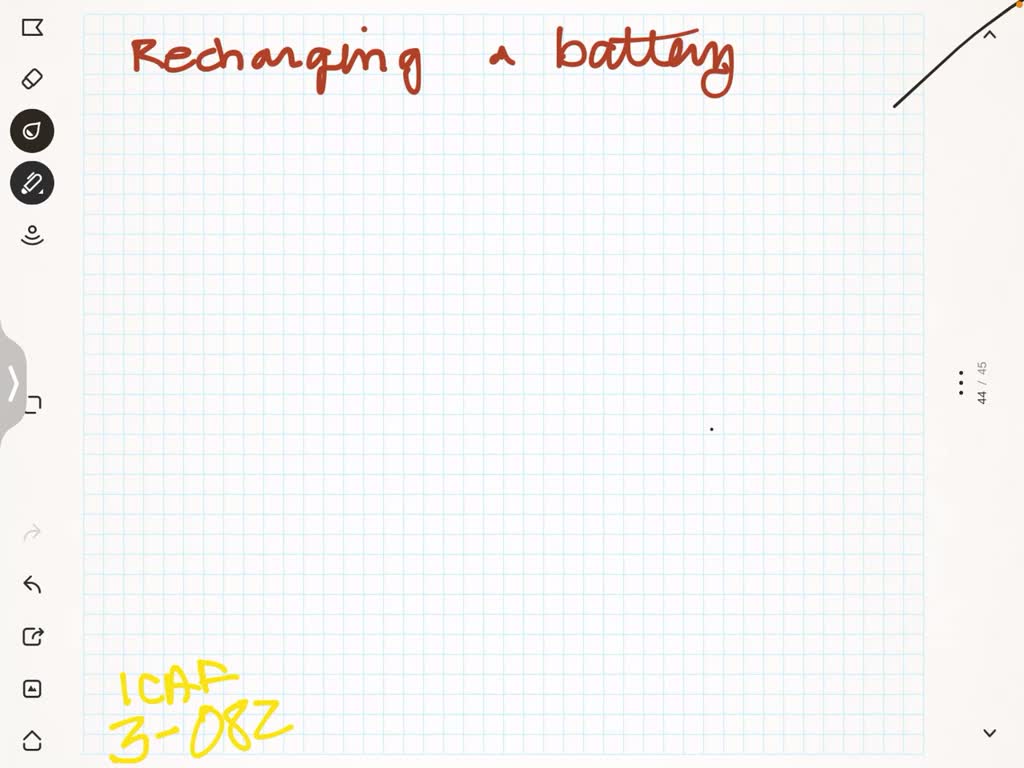 Recharging a battery
44 / 45
ICAF
3-082